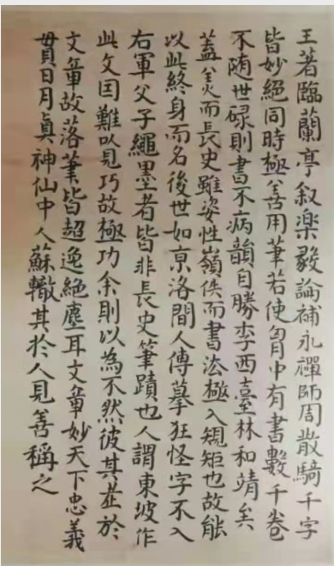 王著臨蘭亭叙樂毅論補永禪師周散騎千字
皆妙絕同時極善用筆若使胷中有書數千卷
不随世碌則書不病韻自勝李西臺林和靖矣
盖美而長史雖姿性嶺佚而書法極入規矩也故能
以此終身而名後世如京洛間人傳摹狂怪字不入
右軍父子繩墨者皆非長史筆蹟也人謂東坡作
此文因難以見巧故極功余則以為不然彼其於
文章故落筆皆超逸絕塵耳文章妙天下忠義
貫日月真神仙中人蘇轍其於人見善稱之